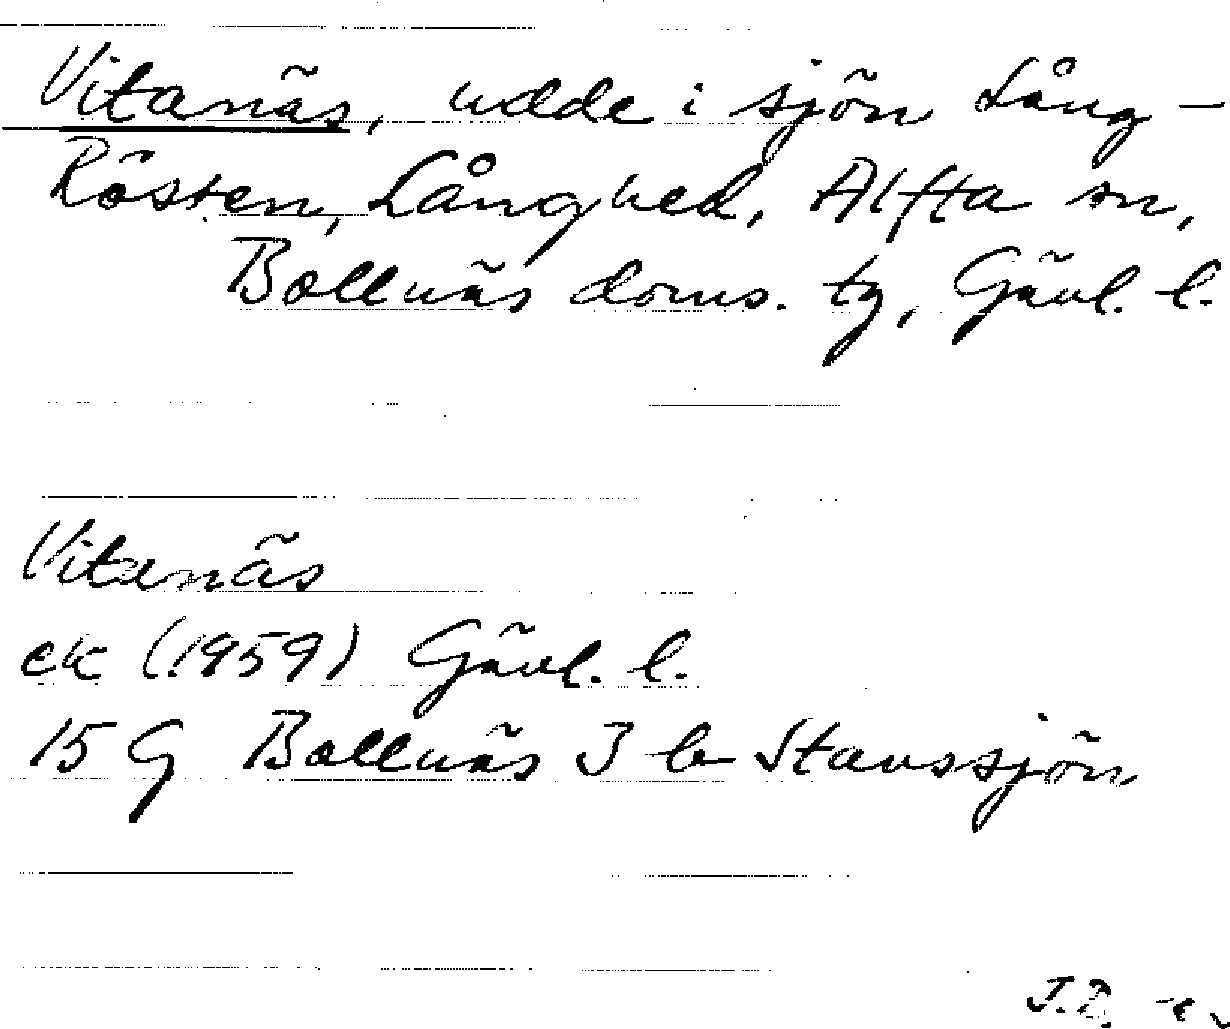 Vitanäs, udde i sjön Lång-
Rösten, Långhed, Alfta sn,
Bollnäs doms. tg, Gävl. l.
Vitanäs
ek (1959) Gävl. l.
15 G Bollnäs 3 b Stavssjön
J.D.